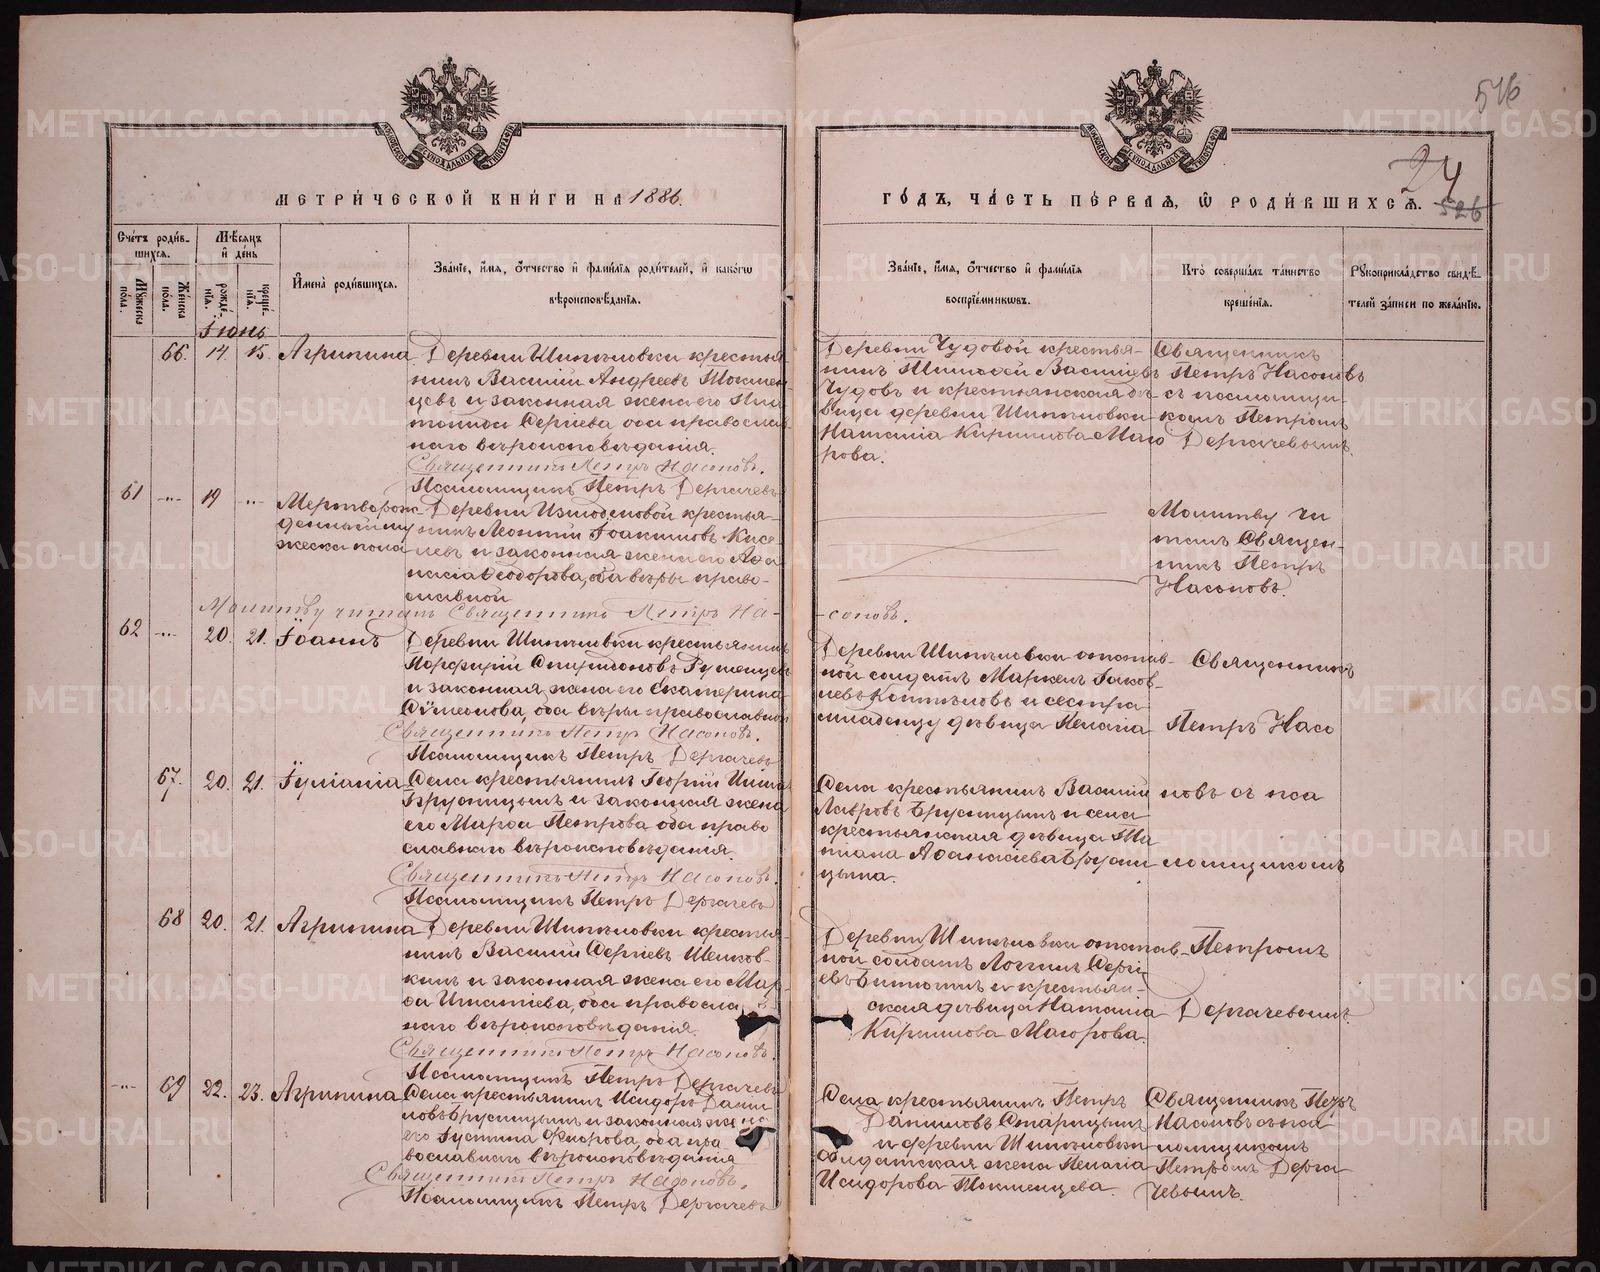 546
24
526
МЕТРИЧЕСКОЙ КНИГИ НА 1886.
ГОДЪ, ЧАСТЬ ПЕРВАЯ, Ѡ РОДИВШИХСЯ.
Счетъ родив-
шихся.
Мужеска пола.
Женска пола.
Мѣсяцъ и день
рожденія.
крещенія.
Имена родившихся.
Званіе, имя, отчество и фамилія родителей, и какогѡ
вѣроисповѣданія.
Званіе, имя, отчество и фамилія
воспріемниковъ.
Кто совершалъ таинство
крещенія.
Рукоприкладство свидѣ-
телей записи по желанію.
Іюнь
66. 14. 15. Агрипина
Деревни Шипѣловки крестья
нинъ Василій Андреевъ Токмен
цевъ и законная жена его
Сергіева оба православ
наго вѣроисповѣданія.
Священникъ Петръ Насоновъ.
Псаломщикъ Петръ Дергачевъ
Деревни Чудовой крестья-
нинъ Василіевъ
Чудовъ и крестьянская дѣ
вица деревни Шипѣловки
Наталія Кириллова Маго
рова.
Священникъ
Петръ Насоновъ
съ псаломщи-
комъ Петромъ
Дергачевымъ.
61 -"- 19 -"-
Мертворож-
денный му
жеска пола
Деревни Измоденовой крестья-
нинъ Леонтій Іоакимовъ Кисе
левъ и законная жена его Аѳа
насія Ѳеодорова, оба вѣры право-
славной
Молитву чи
талъ Священ-
никъ Петръ
Насоновъ.
Молитву читалъ Священникъ Петръ На-
соновъ.
62 -"- 20. 21. Іоаннъ
Деревни Шипѣловки крестьянинъ
Порфирій Спиридоновъ Гуменцевъ
и законная жена его Екатерина
Сѵмеонова, оба вѣры православной
Священникъ Петръ Насоновъ.
Псаломщикъ Петръ Дергачевъ
Деревни Шипѣловки отстав-
ной солдатъ Маркелъ Іаков-
левъ Коптѣловъ и сестра
младенцу дѣвица Пелагія
Священникъ
Петръ Насо
67. 20. 21. Іуліанія
Села крестьянинъ Георгій
Брусницынъ и законная жена
его Марѳа Петрова оба право
славнаго вѣроисповѣданія.
Священникъ Петръ Насоновъ.
Псаломщикъ Петръ Дергачевъ
Села крестьянинъ Василій
Лавровъ Брусницынъ и села
крестьянская дѣвица Та
тіана Аѳанасіева Брусни
цына.
новъ съ пса
ломщикомъ
68 20. 21. Агрипина
Деревни Шипѣловки крестья
нинъ Василій Сергіевъ Шелков-
кинъ и законная жена его Мар
ѳа Игнатіева, оба православ
наго вѣроисповѣданія.
Священникъ Петръ Насоновъ.
Псаломщикъ Петръ Дергачевъ
Деревни Шипѣловки отстав-
ной солдатъ Логгинъ Сергі-
евъ и крестьян-
ская дѣвица Наталія
Кириллова Магорова.
Петромъ
Дергачевымъ.
-"- 69 22. 23. Агрипина
Села крестьянинъ Исидоръ Дани
ловъ Брусницынъ и законная жена
его Іустина Ѳирова, оба пра
вославнаго вѣроисповѣданія
Священникъ Петръ Насоновъ.
Псаломщикъ Петръ Дергачевъ
Села крестьянинъ Петръ
Даниловъ Старицынъ
и деревни Шипѣловки
солдатская жена Пелагія
Исидорова Токменцева.
Священникъ Петръ
Насоновъ съ пса-
ломщикомъ
Петромъ Дерга
чевымъ.
METRIKI.GASO-URAL.RU